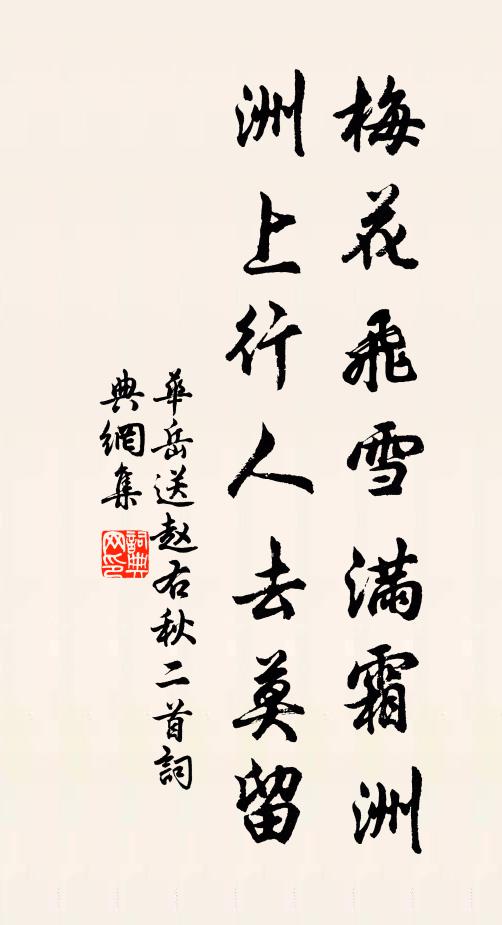 梅花飛雪滿霜洲
洲上行人去莫留
華岳送赵右秋二首詞
典網集
詞典
网印